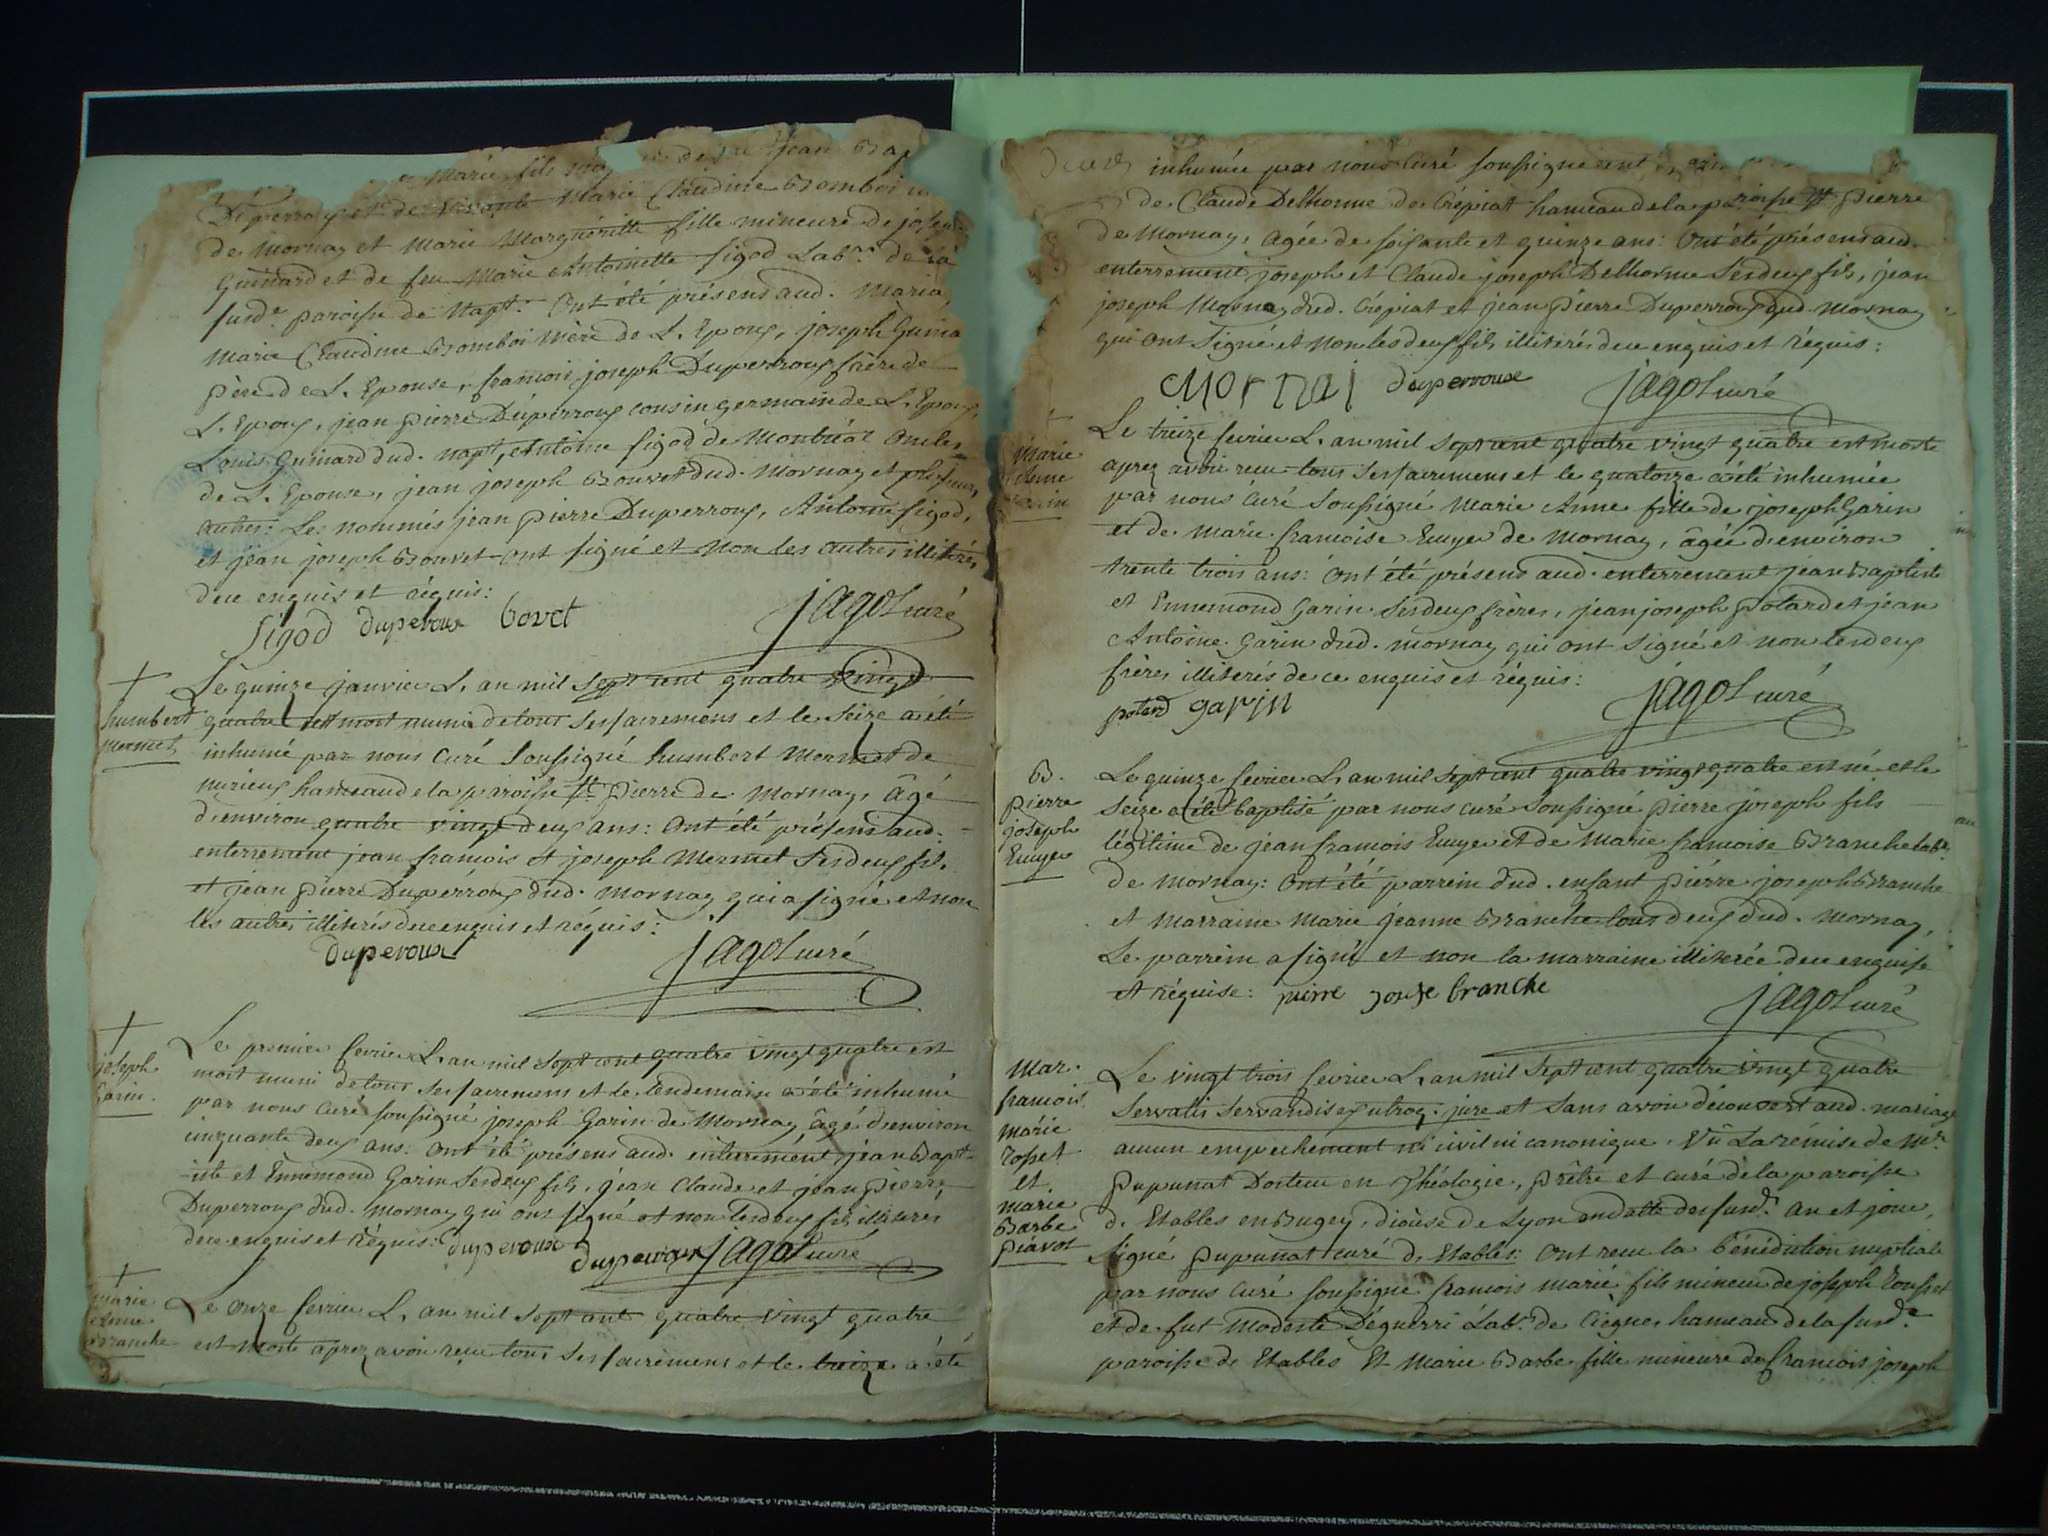 Marié fils jean Bap
Duperroux et de vivante Marie Claudine Bomboi
de Mornay et Marie Marguéritte fille mineure de joseph
Guinard et de feu Marie Antoinette sigod Labr. de la
susde. paroisse de Napt. Ont été présens aud. Maria
Marie Claudine Bomboi mère de L. Epoux, joseph Guina
père de L. Epouse, francois joseph Duperroux frère de
L. Epoux, jean pierre Duperroux cousin germain de L. Epoux,
Louis Guinard dud. napt, Antoine sigod de Montréal oncles
de L. Epouse, jean joseph Bouvet dud. Mornay et plusieurs
autres: Les nommés jean pierre Duperroux, Antoine sigod,
et jean joseph Bouvet ont signé et non les autres illiterés
de ce enquis et réquis:
sigod duperoux bovet jagot curé
Le quinze janvier L. an mil sept cent quatre vingt
humbert
mermet
quatre est mort muni de tous ses sacremens et le seize a été
inhumé par nous Curé soussigné humbert Mermet de
nurieux hameau de la paroisse st pierre de Mornay, âgé
d. environ quatre vingt deux ans: Ont été présens aud.
enterrement jean francois et joseph Mermet ses deux fils,
et jean pierre Duperroux dud. Mornay qui a signé et non
les autres illiterés de ce enquis et réquis:
duperoux jagot curé
joseph
Garin.
Le premier fevrier L. an mil sept cent quatre vingt quatre est
mort muni de tous ses sacremens et le lendemain a été inhumé
par nous curé soussigné joseph Garin de Mornay âgé d. environ
cinquante deux ans: Ont été présens aud. enterrement jean Bapt-
-iste et Ennemond Garin ses deux fils, jean Claude et jean pierre
Duperroux dud. Mornay qui ont signé et non les deux fils illiterés
de ce enquis et réquis: duperoux duperoux jagot curé
marie
Anne
Branche
Le onze fevrier L. an mil sept cent quatre vingt quatre
est morte aprez avoir reçu tous ses sacremens et le treize a été
inhumée par nous Curé soussigné
de Claude Delhorme de Crépiat hameau de la paroisse st pierre
de Mornay, agée de soisante et quinze ans: Ont été présens aud.
enterrement joseph et Claude joseph Delhorme ses deux fils, jean
joseph Mornay dud. Crépiat et jean pierre Duperroux dud. Mornay
qui ont signé et non les deux fils illiterés de ce enquis et réquis:
Mornai duperroux jagot curé
Marie
Anne
Garin
Le treize fevrier L. an mil sept cent quatre vingt quatre est morte
aprez avoir reçu tous ses sacremens et le quatorze a été inhumée
par nous Curé soussigné Marie Anne fille de joseph Garin
et de Marie francoise Emyer de Mornay, âgée d. environ
trente trois ans: Ont été présens aud. enterrement jean Baptiste
et Ennemond Garin ses deux frères, jean joseph potard et jean
Antoine Garin dud. mornay qui ont signé et non les deux
frères illiterés de ce enquis et réquis:
potard garin jagot curé
B.
pierre
joseph
Emyer
Le quinze fevrier L. an mil sept cent quatre vingt quatre est né et le
seize a été baptisé par nous curé soussigné pierre joseph fils
légitime de jean francois Emyer et de Marie francoise Branche labr.
de Mornay: Ont été parrein dud. enfant pierre joseph Branche
et Marraine Marie jeanne Branche tous deux dud. Mornay,
Le parrein a signé et non la marraine illiterée de ce enquise
et réquise: pierre joseph branche jagot curé
Mar.
francois
marie
rosset
et
marie
Barbe
piavot
Le vingt trois fevrier L. an mil sept cent quatre vingt quatre
servatis servandis ex utroq. jure et sans avoir découvert aud. mariage
aucun empechement ni civil ni canonique. Vû La rémise de Mr.
pupunat Docteur en Théologie, prêtre et curé de la paroisse
d. Etables en Bugey, diocèse de Lyon en datte des susd. an et jour,
signé pupunat curé d. Etables: Ont reçu la bénédiction nuptiale
par nous curé soussigné francois marie fils mineur de joseph Rosset
et de fut Modeste Déguerri Labr. de Ciegne, hameau de la susde.
paroisse de Etables Et Marie Barbe fille mineure de francois joseph